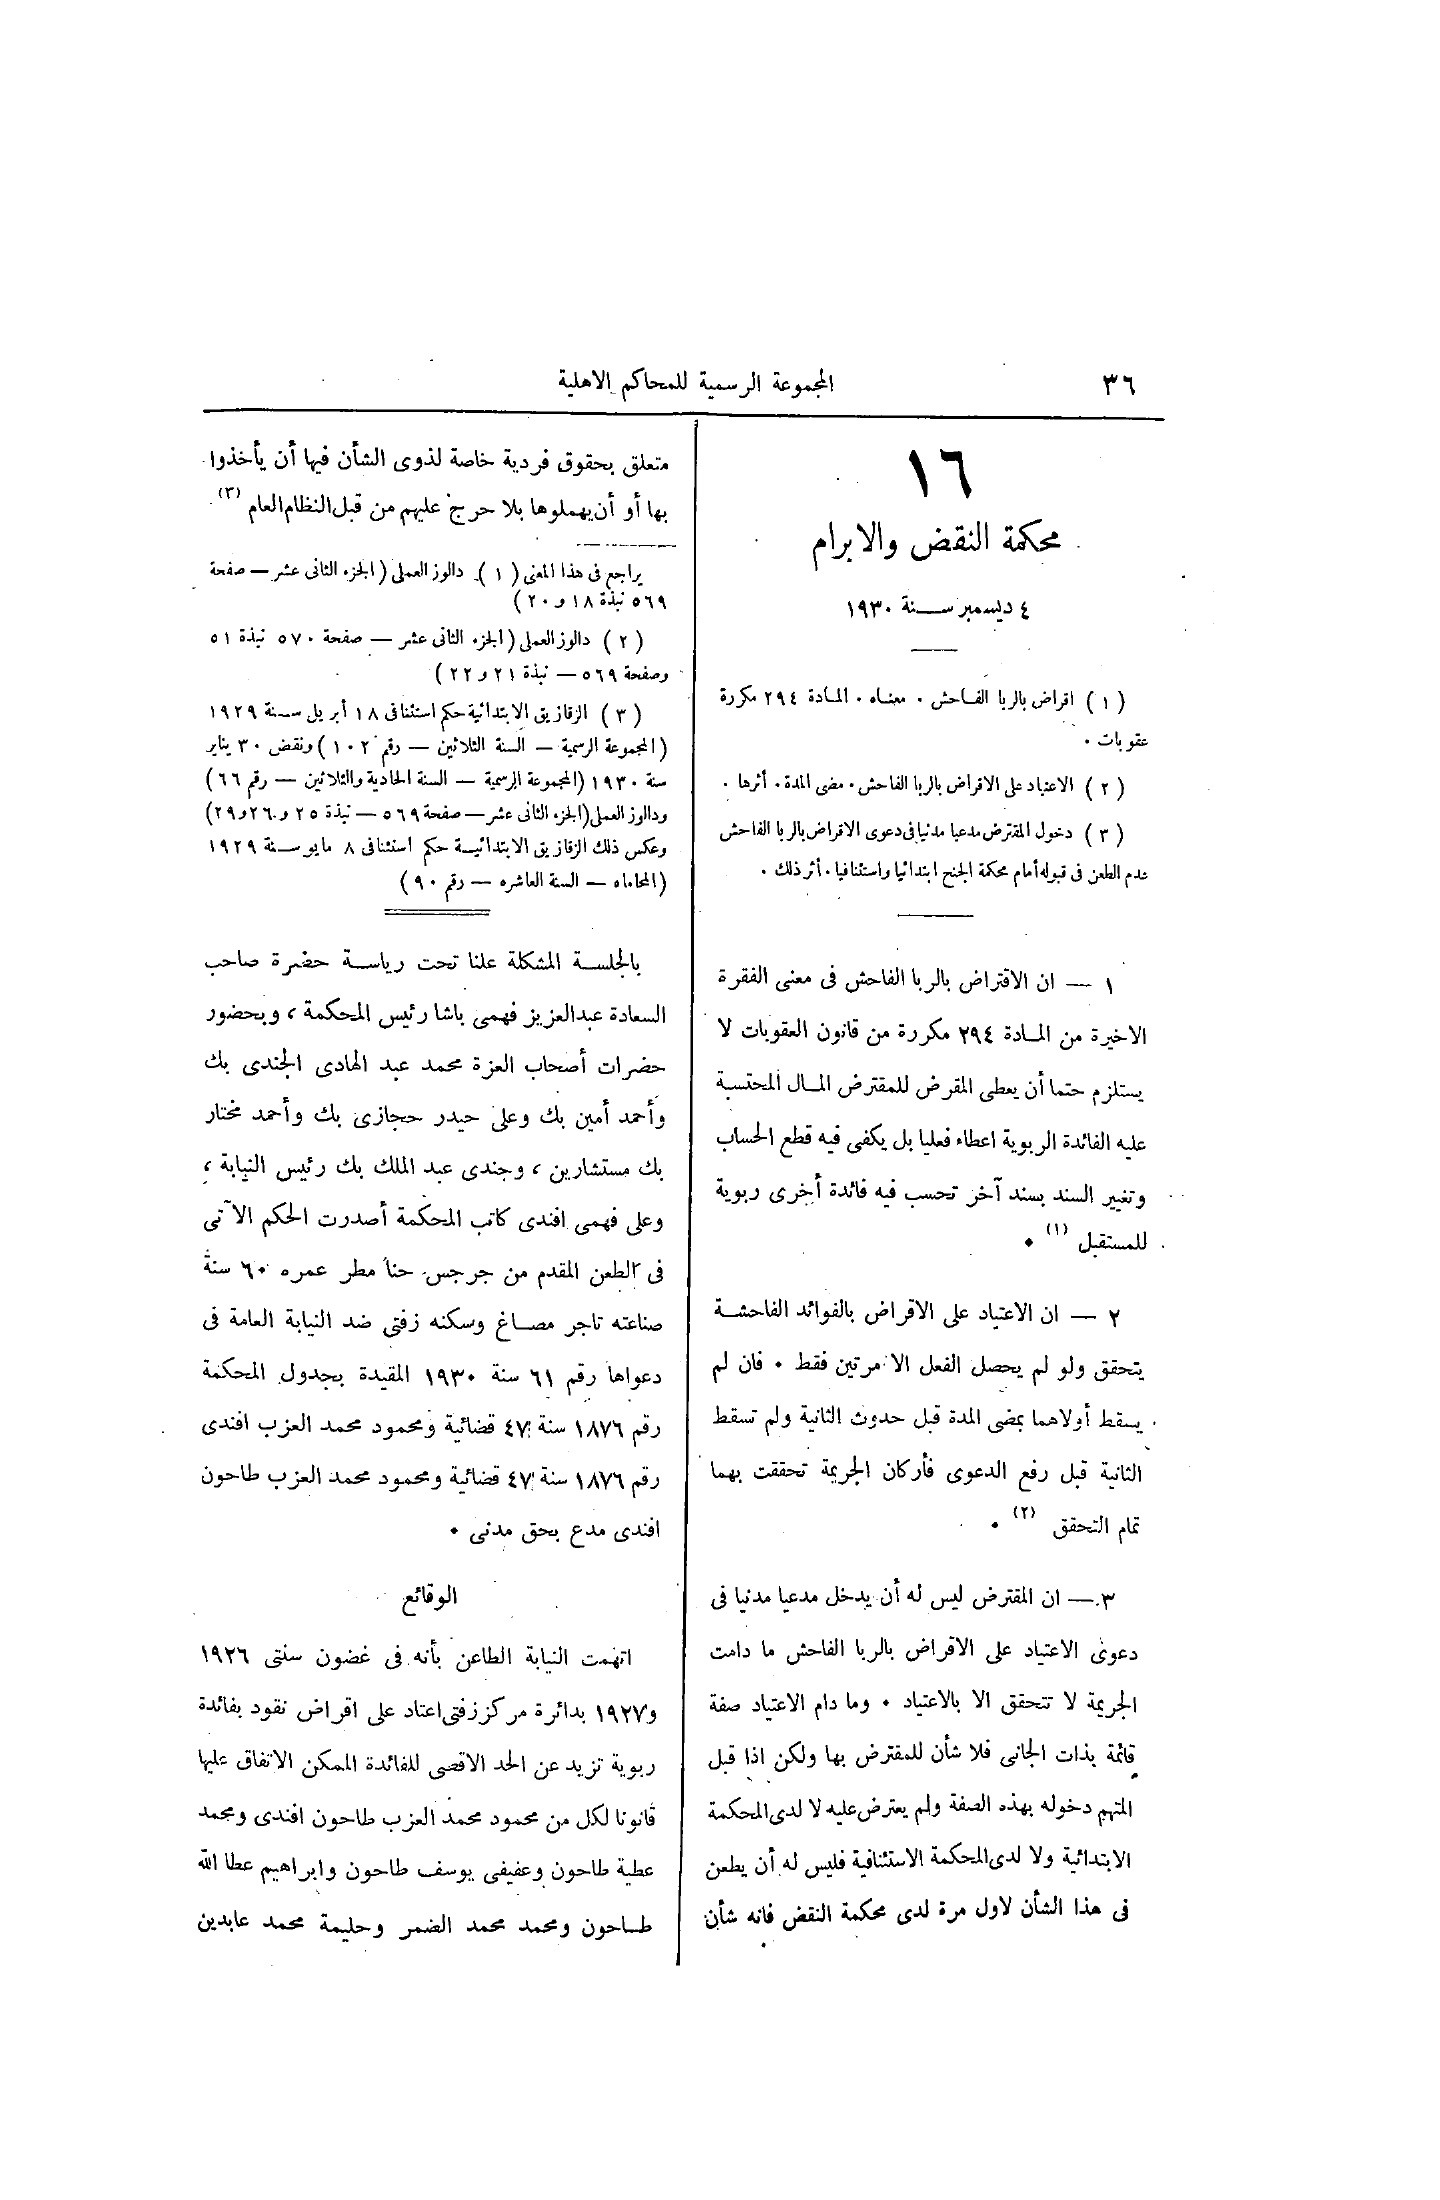 ٣٦
المجموعة الرسمية للمحاكم الاهلية
١٦
محكمة النقض والابرام
٤ ديسمبر سنة ١٩٣٠
(١) اقراض بالربا الفاحش . معناه . المادة ٢٩٤ مكررة
عقوبات .
(٢) الاعتياد على الاقراض بالربا الفاحش . مضى المدة . أثرها .
(٣) دخول المقترض مدعيا مدنيا فى دعوى الاقراض بالربا الفاحش
عدم الطعن فى قبوله أمام محكمة الجنح ابتدائيا واستئنافيا . أثر ذلك .
١ — ان الاقتراض بالربا الفاحش فى معنى الفقرة
الاخيرة من المادة ٢٩٤ مكررة من قانون العقوبات لا
يستلزم حتما أن يعطى المقرض للمقترض المال المحتسبة
عليه الفائدة الربوية اعطاء فعليا بل يكفى فيه قطع الحساب
وتغيير السند بسند آخر تحسب فيه فائدة أخرى ربوية
للمستقبل (١) .
٢ — ان الاعتياد على الاقراض بالفوائد الفاحشة
يتحقق ولو لم يحصل الفعل الا مرتين فقط . فان لم
يسقط أولاهما بمضى المدة قبل حدوث الثانية ولم تسقط
الثانية قبل رفع الدعوى فأركان الجريمة تحققت بهما
تمام التحقق (٢) .
٣ — ان المقترض ليس له أن يدخل مدعيا مدنيا فى
دعوى الاعتياد على الاقراض بالربا الفاحش ما دامت
الجريمة لا تتحقق الا بالاعتياد . وما دام الاعتياد صفة
قائمة بذات الجانى فلا شأن للمقترض بها ولكن اذا قبل
المتهم دخوله بهذه الصفة ولم يعترض عليه لا لدى المحكمة
الابتدائية ولا لدى المحكمة الاستئنافية فليس له أن يطعن
فى هذا الشأن لاول مرة لدى محكمة النقض فانه شأن
متعلق بحقوق فردية خاصة لذوى الشأن فيها أن يأخذوا
بها أو أن يهملوها بلا حرج عليهم من قبل النظام العام (٣)
يراجع فى هذا المعنى (١) دالوز العملى (الجزء الثانى عشر — صفحة
٥٦٩ نبذة ١٨ و ٢٠)
(٢) دالوز العملى (الجزء الثانى عشر — صفحة ٥٧٠ نبذة ٥١
وصفحة ٥٦٩ — نبذة ٢١ و ٢٢)
(٣) الزقازيق الابتدائية حكم استئنافى ١٨ أبريل سنة ١٩٢٩
(المجموعة الرسمية — السنة الثلاثين — رقم ١٠٢) ونقض ٣٠ يناير
سنة ١٩٣٠ (المجموعة الرسمية — السنة الحادية والثلاثين — رقم ٦٦)
ودالوز العملى (الجزء الثانى عشر — صفحة ٥٦٩ — نبذة ٢٥ و ٢٦ و ٢٩)
وعكس ذلك الزقازيق الابتدائية حكم استئنافى ٨ مايو سنة ١٩٢٩
(المحاماه — السنة العاشره — رقم ٩٠)
بالجلسة المشكلة علنا تحت رياسة حضرة صاحب
السعادة عبد العزيز فهمى باشا رئيس المحكمة ، وبحضور
حضرات أصحاب العزة محمد عبد الهادى الجندى بك
وأحمد أمين بك وعلى حيدر حجازى بك وأحمد مختار
بك مستشارين ، وجندى عبد الملك بك رئيس النيابة ،
وعلى فهمى افندى كاتب المحكمة أصدرت الحكم الآتى
فى الطعن المقدم من جرجس حنا مطر عمره ٦٠ سنة
صناعته تاجر مصاغ وسكنه زفتى ضد النيابة العامة فى
دعواها رقم ٦١ سنة ١٩٣٠ المقيدة بجدول المحكمة
رقم ١٨٧٦ سنة ٤٧ قضائية ومحمود محمد العزب افندى
رقم ١٨٧٦ سنة ٤٧ قضائية ومحمود محمد العزب طاحون
افندى مدع بحق مدنى .
الوقائع
اتهمت النيابة الطاعن بأنه فى غضون سنتى ١٩٢٦
و ١٩٢٧ بدائرة مركز زفتى اعتاد على اقراض نقود بفائدة
ربوية تزيد عن الحد الاقصى للفائدة الممكن الاتفاق عليها
قانونا لكل من محمود محمد العزب طاحون افندى ومحمد
عطية طاحون وعفيفى يوسف طاحون وابراهيم عطا الله
طاحون ومحمد محمد الضمر وحليمة محمد عابدين